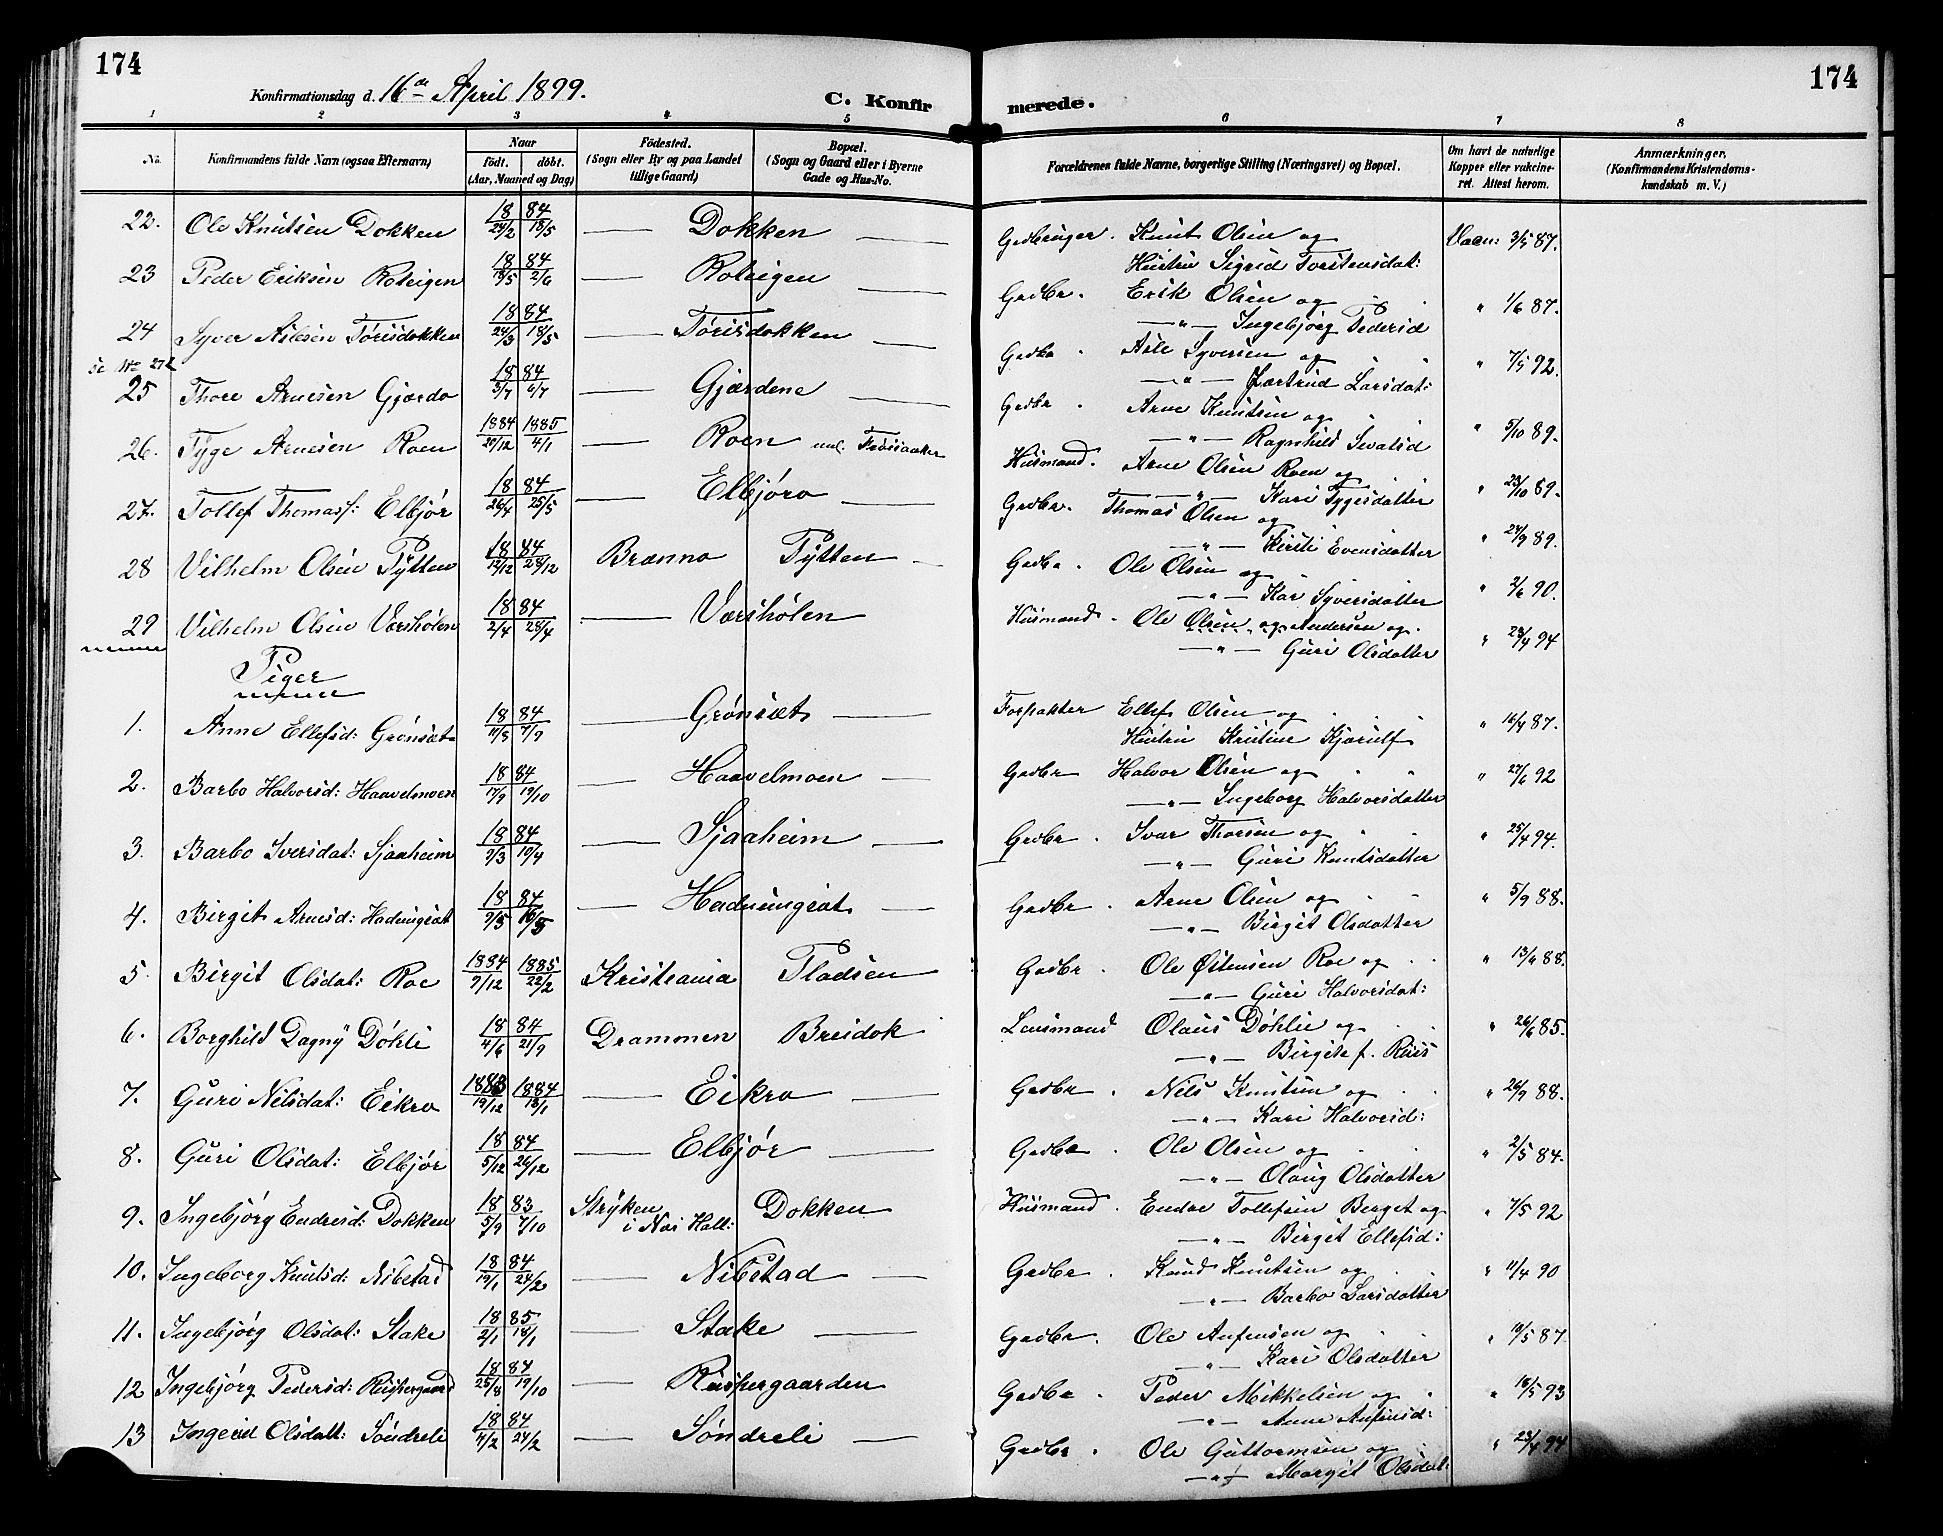 174
174
Konfirmationsdag d. 16de April 1899.
C. Konfirmerede.
1 2 3 4 5 6 7 8
No.
Konfirmandens fulde Navn (ogsaa Efternavn)
Naar
født. døbt.
(Aar, Maaned og Dag)
Fødested.
(Sogn eller By og paa Landet
tillige Gaard)
Bopæl.
(Sogn og Gaard eller i Byerne
Gade og Hus-No.
Forældrenes fulde Navne, borgerlige Stilling (Næringsvei) og Bopæl.
Om havt de naturlige
Kopper eller vakcine-
ret. Attest herom.
Anmærkninger,
(Konfirmandens Kristendoms-
kundskab m. V.)
22. Ole Knutsen Dokken 1884 29/2 18/5 — Dokken — Gaardbruger. Knut Olsen og Vacn: 3/5 87.
Hustru Sigrid Torstensdat:
23 Peder Eriksen Rotvigen 1884 18/5 2/6 — Rotvigen — Gadbr. Erik Olsen og " 1/6 87.
—"— Ingebjørg Pedersd
24 Syver Aslesen Tørisdokken 1884 24/3 18/5 — Tørisdokken — Gadbr. Asle Syversen og " 7/5 92.
—"— Jartrud Larsdat:
25 Thore Arnesen Gjærdo 1884 3/7 6/7 — Gjærdene — Gadbr. Arne Knutsen og " 5/10 89.
—"— Ragnhild
26. Tyge Arnesen Roen 1884 1885 4/1 — Roen Husmand. Arne Olsen Roen og " 23/10 89.
—"— Kari Tygesdatter
27. Tollef Thomass: Elbjør 1884 26/4 25/5 — Elbjøro — Gadbr. Thomas Olsen og " 24/9 89.
—"— Kirsti Evensdatter
28 Vilhelm Olsen Pytten 1884 12/12 28/12 Brænno Pytten — Gadbr. Ole Olsen og " 2/6 90.
—"— Kar Syversdatter
29 Vilhelm Olsen Værshølen 1884 2/4 28/4 — Værshølen Husmand. Ole Olsen og Andersen og " 23/4 94
—"— Guri Olsdatter
Piger
1. Anne Ellefsd: Grønsæt 1884 11/8 7/9 — Grønsæt — Forpakter Ellef Olsen og " 16/4 87.
Hustru Kristine Kjærulf
2. Barbo Halvorsd: Haavelmoen 1884 17/9 19/10 — Haavelmoen — Gadbr Halvor Olsen og " 27/6 92
—"— Ingeborg Halvorsdatter
3. Barbo Iversdat: Sjaaheim 1884 9/3 19/4 — Sjaaheim — Gadbr. Ivar Thorsen og " 25/4 94.
—"— Guri Knutsdatter
4. Birgit Arnesd: 1884 9/5 — — Gadbr. Arne Olsen og " 5/9 88.
—"— Birgit Olsdatter
5. Birgit Olsdat: Roe 1884 9/12 1885 22/2 Kristiania Pladsen Gadbr. Ole Østensen Roe og " 88.
—"— Guri Halvorsdat:
6. Borghild Dagny Døhli 1884 4/6 21/9 Drammen Breidok Lensmand Olaus Døhlie og " 26/6 85.
—"— Birgite f. Ruus
7. Guri Nilsdat: Eikro 1883 19/12 1884 13/1 — Eikro — Gadbr. Nils Knutsen og " 26/9 88.
—"— Kari Halvorsd:
8. Guri Olsdat: Elbjør 1884 5/12 26/12 — Elbjør — Gadbr. Ole Olsen og " 2/5 84.
—"— Olaug Olsdatter
9. Ingebjørg Endresd: Dokken 1883 5/9 7/10 Stryken i Nes Hall: Dokken Husmand. Endre Tollefsen Berget og " 7/5 92
—"— Birgit Ellefsd:
10. Ingeborg Knutsd: Nibstad 1884 19/1 24/2 — Nibstad — Gadbr. Knud Knutsen og " 11/4 90
—"— Barbo Larsdatter
11. Ingebjørg Olsdat: Stake 1885 2/1 18/1 — Stake — Gadbr. Ole Anfinsen og " 10/5 87.
—"— Kari Olsdatter
12 Ingebjørg Pedersd: Ruspergaard 1884 25/8 19/10 — Ruspergaarden Gadbr. Peder Mikkelsen og " 18/5 93
—"— Anne Anfinsd:
13 Ingerid Olsdatt: Søndreli 1884 4/2 24/2 — Søndreli — Gadbr. Ole Guttormsen og " 23/4 94
—"— Margit Olsdat: